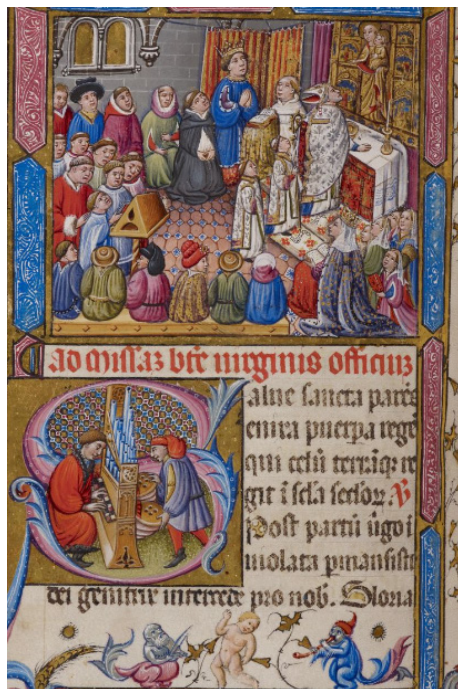 ad missaz bte uirginis officiuz
Salue sancta pares
enixa puerpa rege
qui celū terrāqz re
git ī scła scłoꝝ V̷
Post partū ūgo ī
uiolata pmansisti
dei genitrix intercede pro nob. Gloria